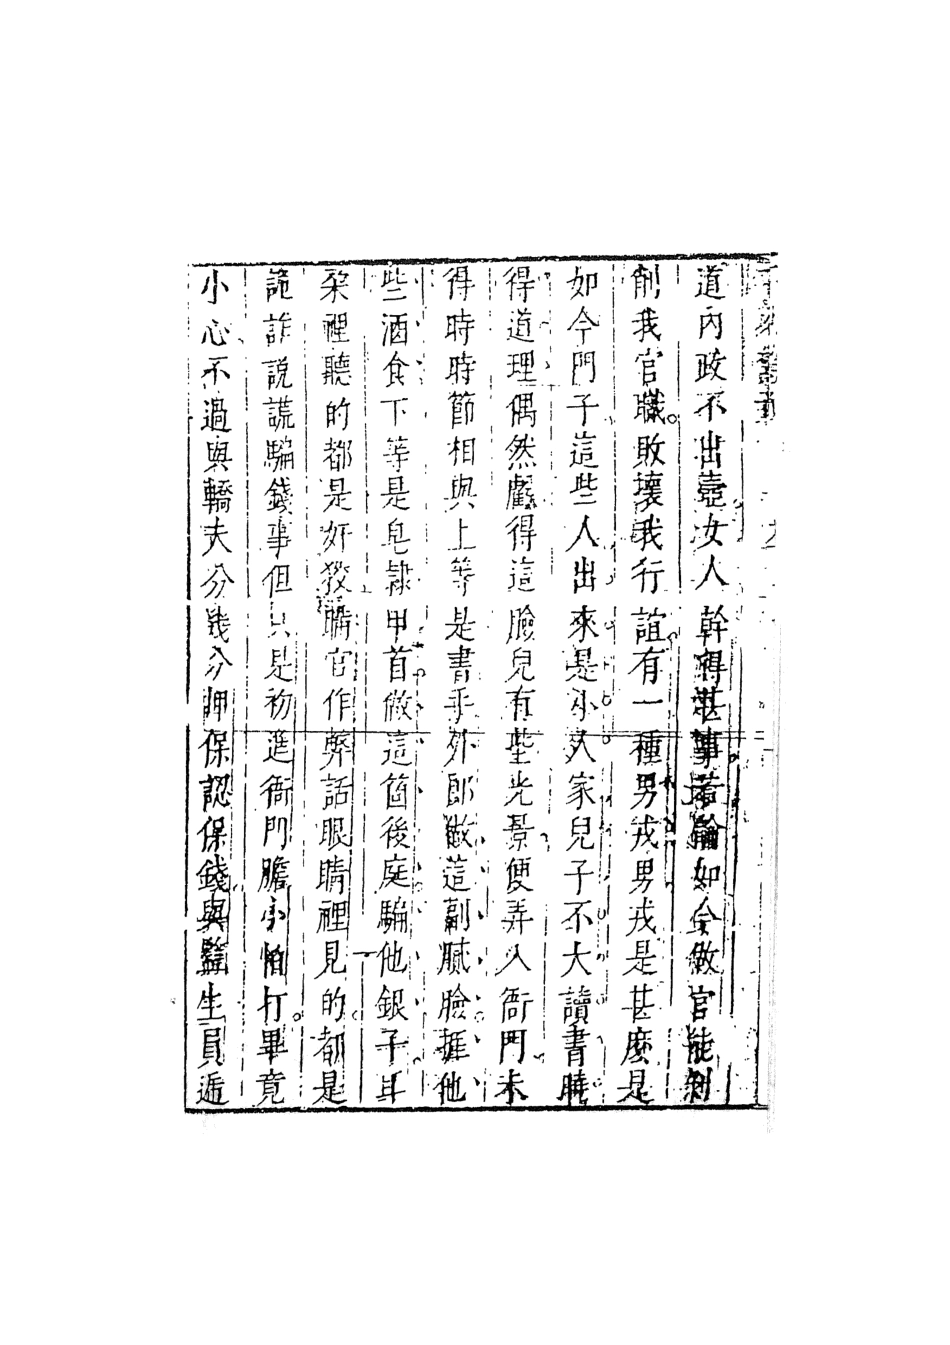 道內政不出壼女人幹得甚事若論如今做官能剝
削我官職敗壞我行誼有一種男戎男戎是甚麼是
如今門子這些人出來是小人家兒子不大讀書曉
得道理偶然虧得這臉兒有些光景便弄入衙門未
得時時節相與上等是書手外郎做這副膩臉捱他
些酒食下等是皂隸甲首做這箇後庭騙他銀子耳
朵裡聽的都是奸狡瞞官作弊話眼睛裡見的都是
詭詐說謊騙錢事但只是初進衙門膽小怕打畢竟
小心不過與轎夫分幾分押保認保錢與監生員遞